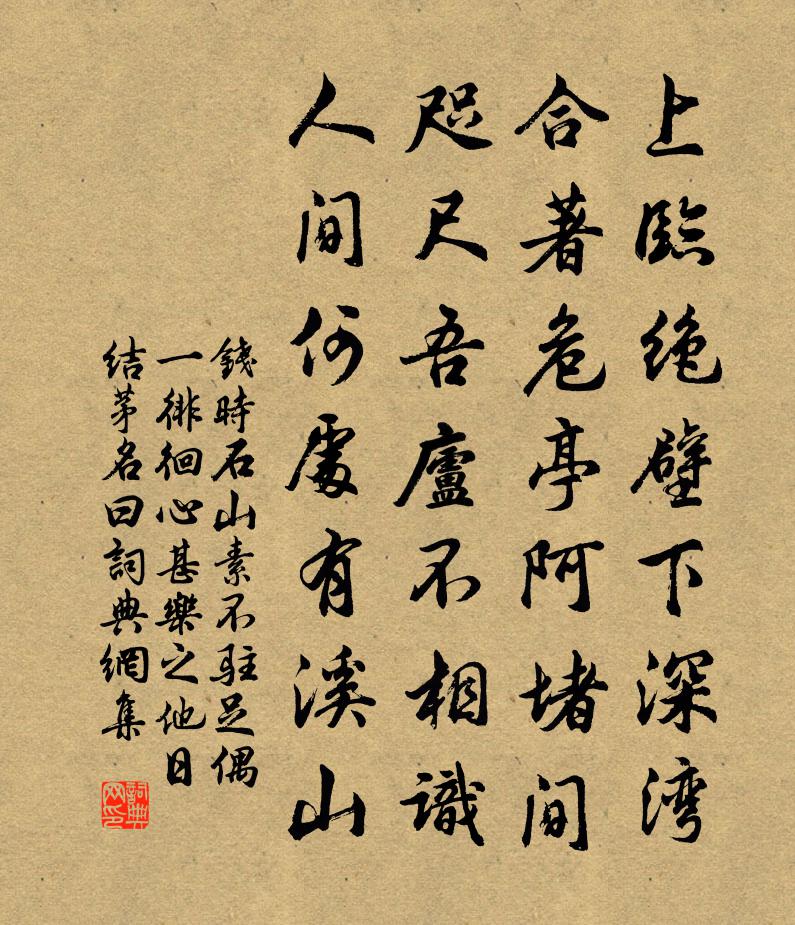 上臨絶壁下深湾
合著危亭阿堵間
咫尺吾廬不相識
人間何處有溪山
錢時石山素不駐足偶
一徘徊心甚樂之他日
結茅名曰詞典網集
詞典网印